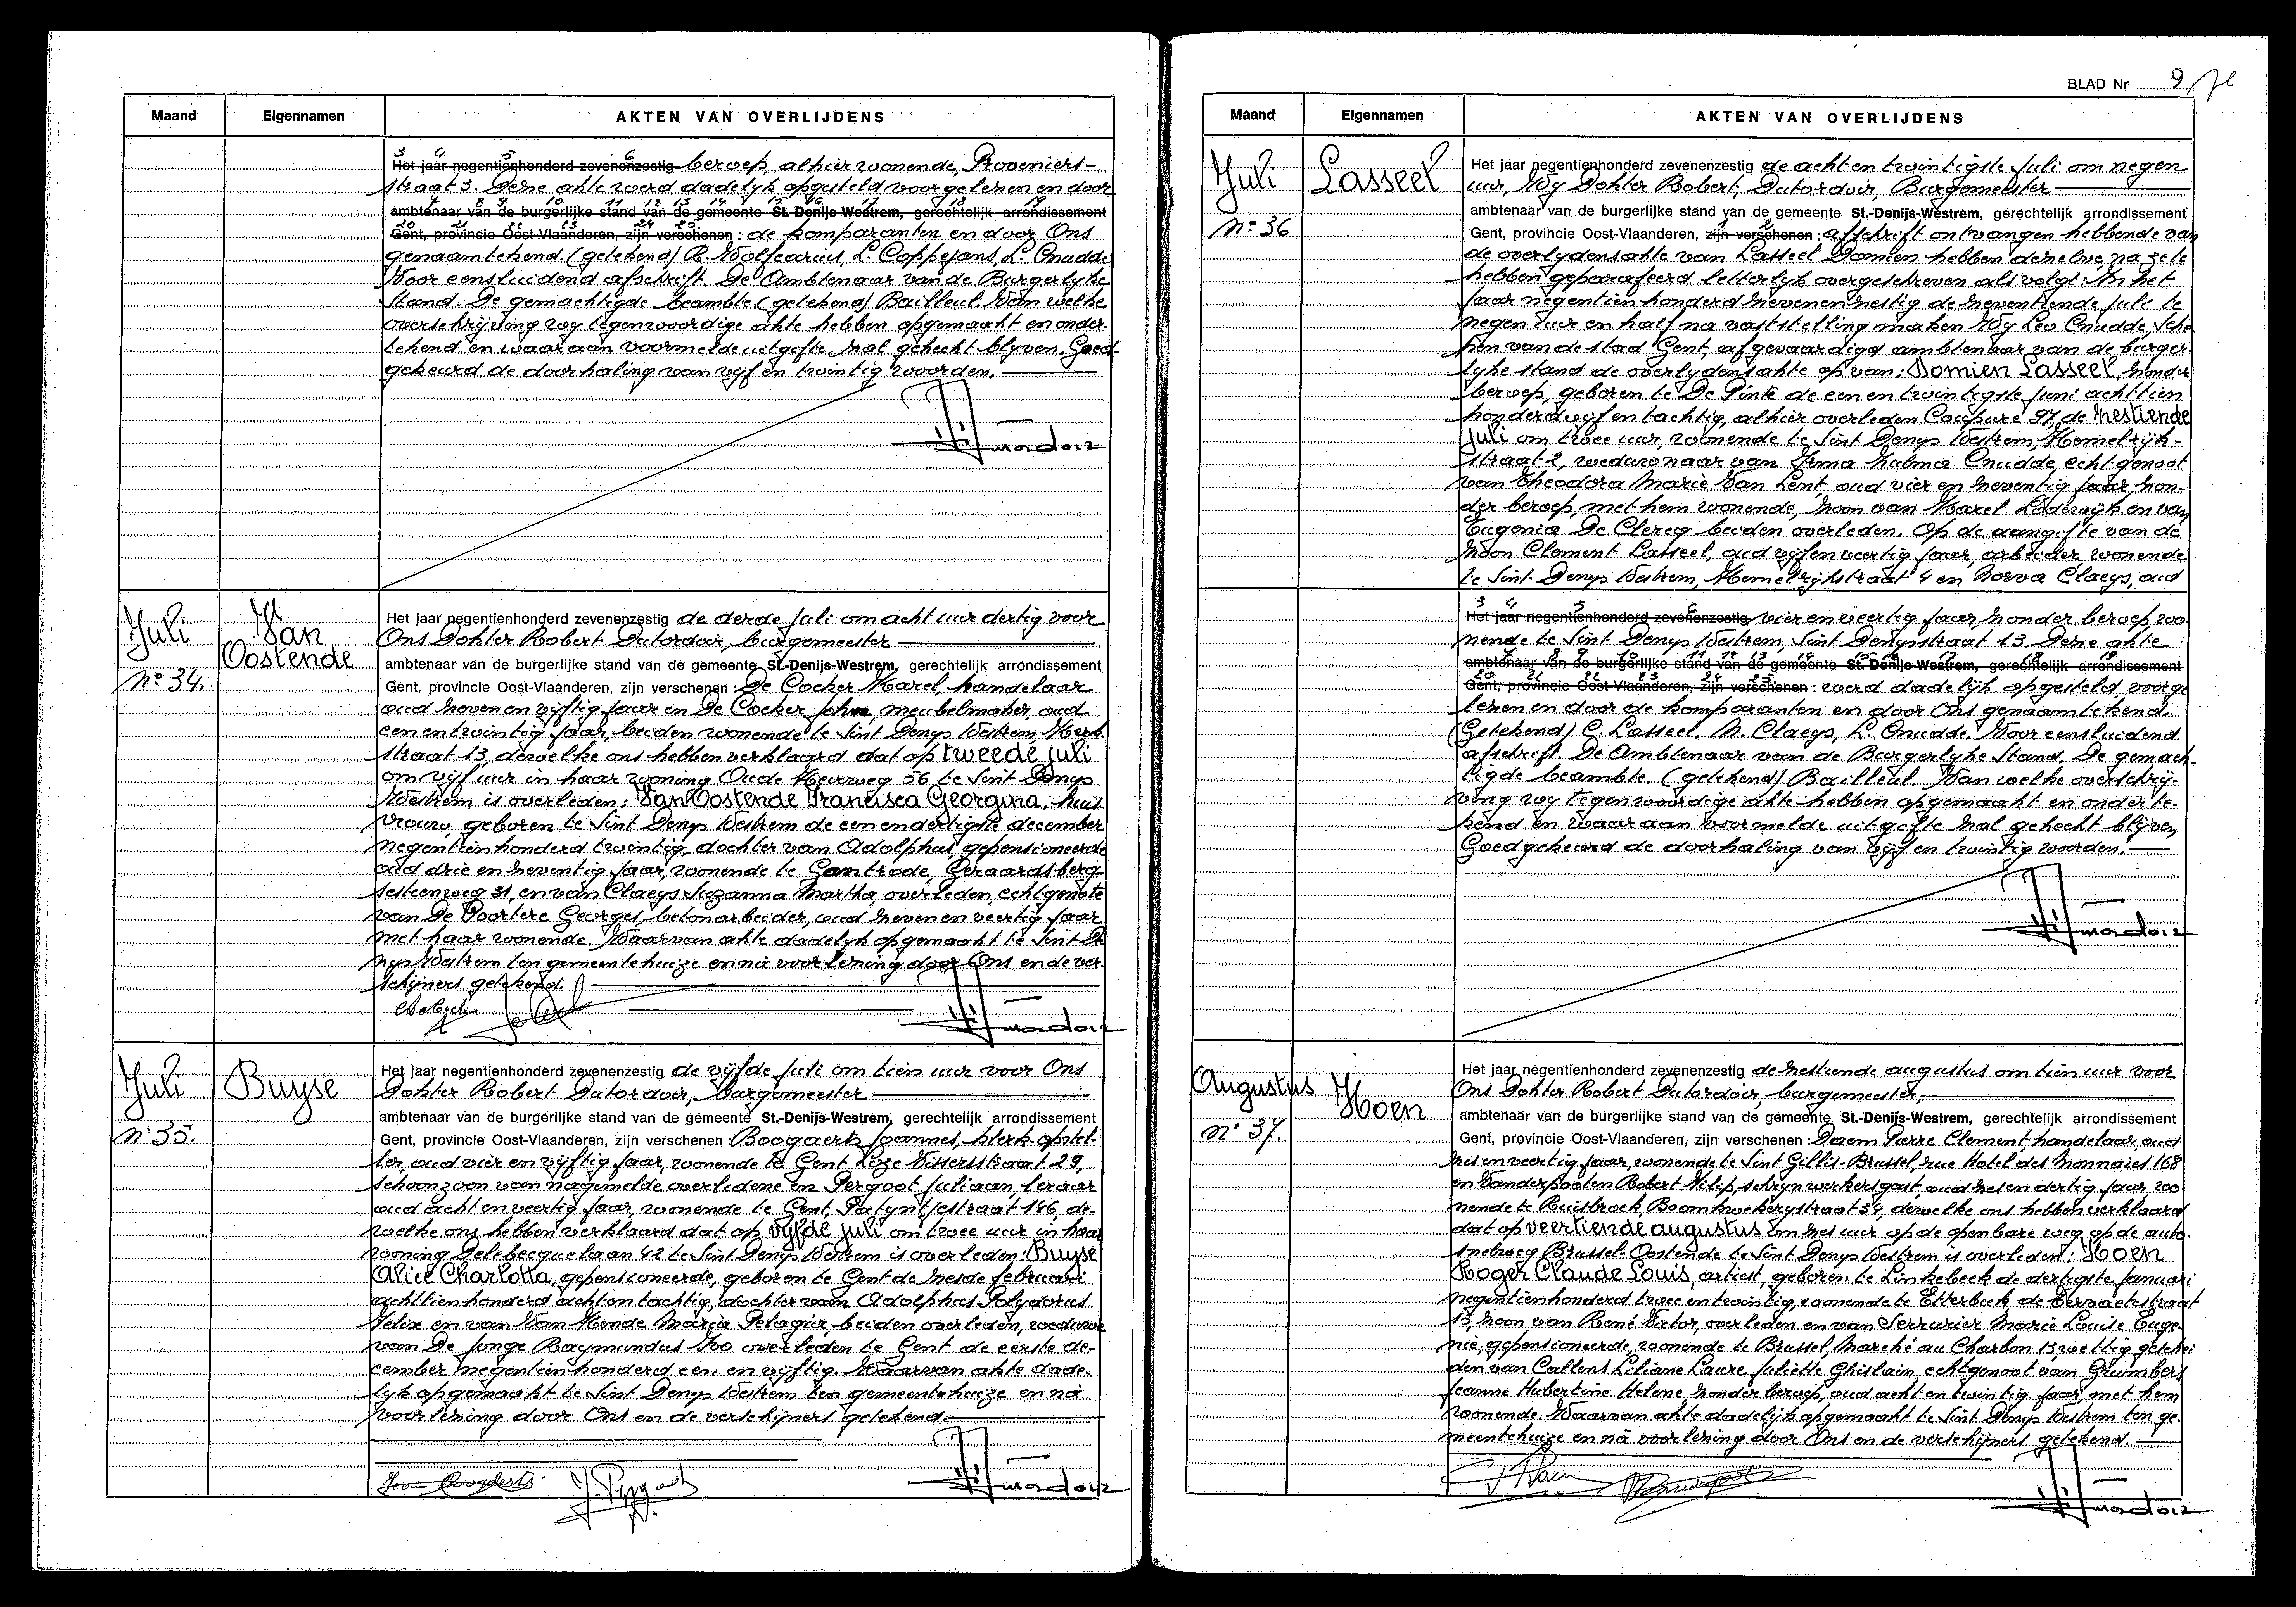 Maand Eigennamen AKTEN VAN OVERLIJDENS
3 4 5 6
Het jaar negentienhonderd zevenenzestig beroep, alhier wonende, Proveniers-
straat 3. Deze akte werd dadelijk opgesteld voorgelezen en door
7 8 9 10 11 12 13 14 15 16 17 18 19
ambtenaar van de burgerlijke stand van de gemeente St.-Denijs-Westrem, gerechtelijk arrondissement
20 21 22 23 24 25
Gent, provincie Oost-Vlaanderen, zijn verschenen : de komparanten en door Ons
genaamtekend. (getekend) R. Wolfcarius, L. Coppejans, L. Cnudde
Voor eensluidend afschrift. De Ambtenaar van de Burgerlyke
Stand. De gemachtigde beambte (getekend) Bailleul. Van welke
overschrijving wy tegenwoordige akte hebben opgemaakt en onder-
tekend en waaraan voormelde uitgifte zal gehecht blyven. Goed-
gekeurd de doorhaling van vijf en twintig woorden.
Juli
Van
Oostende
n° 34.
Het jaar negentienhonderd zevenenzestig de derde juli om acht uur dertig voor
Ons Dokter Robert Dutordoir, burgemeester
ambtenaar van de burgerlijke stand van de gemeente St.-Denijs-Westrem, gerechtelijk arrondissement
Gent, provincie Oost-Vlaanderen, zijn verschenen : De Cocker Karel, handelaar
oud zeven en vijftig jaar en De Cocker John, meubelmaker, oud
een en twintig jaar, beiden wonende te Sint Denys Westrem, Kerk
straat 13, dewelke ons hebben verklaard dat op tweede juli
om vijf uur in haar woning Oude Heirweg 56 te Sint Denys
Westrem is overleden: Van Oostende Francisca Georgina, huis
vrouw, geboren te Sint Denys Westrem de een en dertigste december
negentienhonderd twintig, dochter van Adolphus, gepensioneerde
oud drie en zeventig jaar, wonende te Gontrode, Geraardsberg-
sesteenweg 31, en van Claeys Suzanna Martha, overleden, echtgenote
van De Poortere Georges, betonarbeider, oud zeven en veertig jaar
met haar wonende. Waarvan akte dadelyk opgemaakt te Sint De
nys Westrem ten gemeentehuize en nà voorlezing door Ons en de ver-
schijners getekend.
Juli
Buyse
n° 35.
Het jaar negentienhonderd zevenenzestig de vijfde juli om tien uur voor Ons
Dokter Robert Dutordoir, burgemeester
ambtenaar van de burgerlijke stand van de gemeente St.-Denijs-Westrem, gerechtelijk arrondissement
Gent, provincie Oost-Vlaanderen, zijn verschenen : Boogaerts Joannes, klerk opstel-
ler, oud vier en vijftig jaar, wonende te Gent Loze Vissersstraat 29,
schoonzoon van nagemelde overledene en Pergoot Juliaan, leraar
oud acht en veertig jaar, wonende te Gent, Patyntjestraat 146, de-
welke ons hebben verklaard dat op vijfde juli om twee uur in haar
woning Delebecquelaan 42 te Sint Denys Westrem is overleden: Buyse
Alice Charlotta, gepensioneerde, geboren te Gent de zesde februari
achttienhonderd acht en tachtig, dochter van Adolphus Polydorus
Felix en van Van Hende Maria Pelagia, beiden overleden, weduwe
van De Jonge Raymundus Ivo overleden te Gent de eerste de-
cember negentienhonderd een en vijftig. Waarvan akte dade-
lyk opgemaakt te Sint Denys Westrem ten gemeentehuize en nà
voorlezing door Ons en de verschijners getekend.
BLAD Nr 9
Maand Eigennamen AKTEN VAN OVERLIJDENS
Juli
Lasseel
n° 36
Het jaar negentienhonderd zevenenzestig de acht en twintigste juli om negen
uur, Wy Dokter Robert, Dutordoir, Burgemeester
ambtenaar van de burgerlijke stand van de gemeente St.-Denijs-Westrem, gerechtelijk arrondissement
1 2
Gent, provincie Oost-Vlaanderen, zijn verschenen : afschrift ontvangen hebbende van
de overlydensakte van Lasseel Domien hebben dezelve, na ze te
hebben geparafeerd letterlyk overgeschreven als volgt: In het
jaar negentienhonderd zevenenzestig de zeventiende juli te
negen uur en half na vaststelling maken Wy Leo Cnudde, Sche
pen van de stad Gent, afgevaardigd ambtenaar van de burger-
lyke stand de overlydensakte op van: Domien Lasseel, zonder
beroep, geboren te De Pinte de een en twintigste juni achttien
honderd vijf en tachtig, alhier overleden Coupure 97, de zestiende
juli om twee uur, wonende te Sint Denys Westrem, Hemelrijk-
straat 2, weduwnaar van Irma Zulma Cnudde, echtgenoot
van Theodora Marie Van Lent, oud vier en zeventig jaar, zon-
der beroep, met hem wonende, zoon van Karel Lodewijk en van
Eugenia De Clercq beiden overleden. Op de aangifte van de
zoon Clement Lasseel, oud vijf en veertig jaar, arbeider wonende
te Sint-Denys Westrem, Hemelrijkstraat 4 en Norva Claeys, oud
3 4 5 6
Het jaar negentienhonderd zevenenzestig vier en veertig jaar, zonder beroep, wo
nende te Sint Denys Westrem, Sint Denysstraat 13. Deze akte
7 8 9 10 11 12 13 14 15 16 17 18 19
ambtenaar van de burgerlijke stand van de gemeente St.-Denijs-Westrem, gerechtelijk arrondissement
20 21 22 23 24 25
Gent, provincie Oost-Vlaanderen, zijn verschenen : werd dadelijk opgesteld, voorge
lezen en door de komparanten en door Ons genaamtekend.
(Getekend) C. Lasseel. N. Claeys, L. Cnudde. Voor eensluidend
afschrift. De Ambtenaar van de Burgerlyke Stand. De gemach-
tigde beambte. (getekend) Bailleul. Van welke overschrij-
ving wy tegenwoordige akte hebben opgemaakt en onderte-
kend en waaraan voormelde uitgifte zal gehecht blijven
Goedgekeurd de doorhaling van vijf en twintig woorden.
Augustus
Hoen
n° 37.
Het jaar negentienhonderd zevenenzestig de zestiende augustus om tien uur voor
Ons Dokter Robert Dutordoir, burgemeester,
ambtenaar van de burgerlijke stand van de gemeente St.-Denijs-Westrem, gerechtelijk arrondissement
Gent, provincie Oost-Vlaanderen, zijn verschenen : Daem Pierre Clement, handelaar, oud
zes en veertig jaar, wonende te Sint Gillis-Brussel, rue Hotel des Monnaies 168
en Vanderpooten Robert Filip, schrynwerkersgast, oud zes en dertig jaar wo
nende te Ruisbroek, Boomkwekerystraat 34, dewelke ons hebben verklaard
dat op veertiende augustus om zes uur op de openbare weg op de auto-
snelweg Brussel-Oostende te Sint Denys Westrem is overleden: Hoen
Roger Claude Louis, artiest, geboren te Linkebeek de dertigste januari
negentienhonderd twee en twintig, wonende te Etterbeek, de Tervaetestraat
15, zoon van René Victor, overleden en van Serrurier Marie Louise Euge-
nie, gepensioneerde, wonende te Brussel, Marché au Charbon 13 wettig geschei
den van Callens Liliane Laure Juliette Ghislain, echtgenoot van Grumbers
Jeanne Hubertine Helene, zonder beroep, oud acht en twintig jaar, met hem
wonende. Waarvan akte dadelijk opgemaakt te Sint Denys Westrem ten ge-
meentehuize en nà voorlezing door Ons en de verschijners getekend.